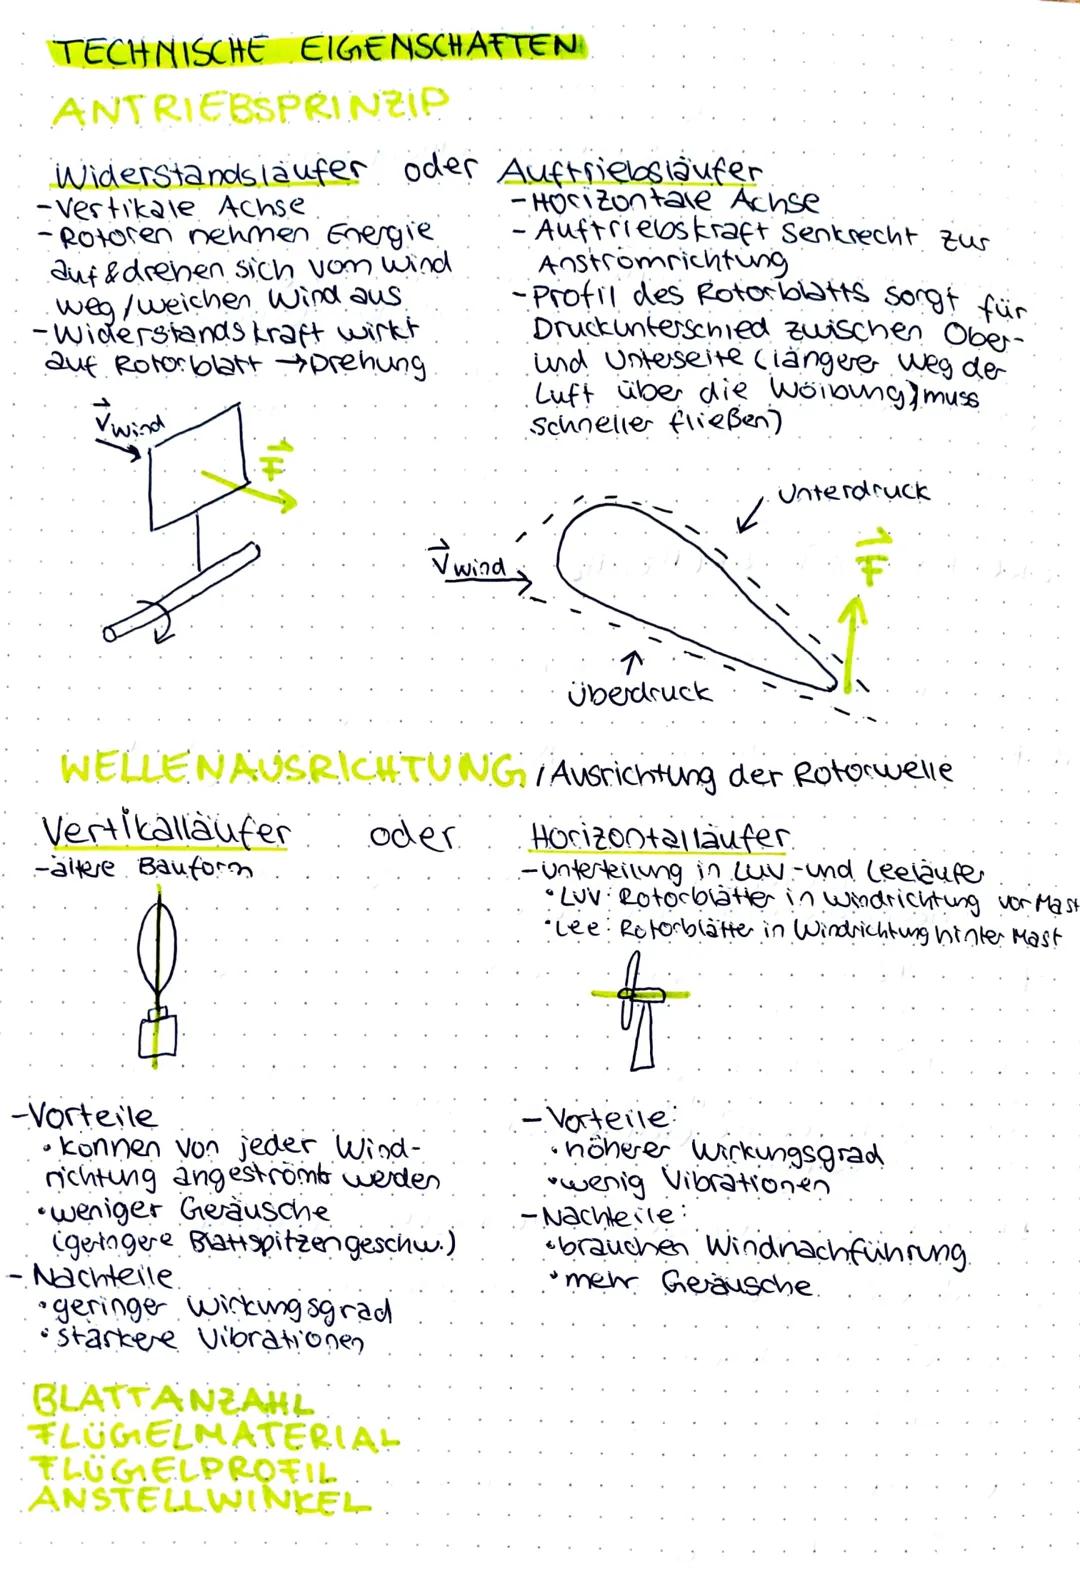 TECHNISCHE EIGENSCHAFTEN
ANTRIEBSPRINZIP
Widerstandsläufer oder Auftriebsläufer
-Vertikale Achse
-Rotoren nehmen Energie
auf & drehen sich vom Wind
weg/weichen Wind aus
-Widerstandskraft wirkt
auf Rotorblatt →Drehung
-Horizontale Achse
-Auftriebskraft senkrecht zur
Anströmrichtung
-Profil des Rotorblatts sorgt für
Druckunterschied zwischen Ober-
und Unterseite (längerer Weg der
Luft über die Wölbung, muss
schneller fließen)
V wind
F
Unterdruck
V wind
F
Überdruck
WELLENAUSRICHTUNG / Ausrichtung der Rotorwelle
Vertikalläufer oder Horizontalläufer
-ältere Bauform
-Unterteilung in Luv-und Leeläufer
•Luv: Rotorblätter in Windrichtung vor Mast
•Lee: Rotorblätter in Windrichtung hinter Mast
-Vorteile
•können von jeder Wind-
richtung angeströmt werden
•weniger Geräusche
(geringere Blattspitzengeschw.)
-Nachteile
•geringer Wirkungsgrad
•stärkere Vibrationen
-Vorteile:
•höherer Wirkungsgrad
•wenig Vibrationen
-Nachteile:
•brauchen Windnachführung
•mehr Geräusche
BLATTANZAHL
FLÜGELMATERIAL
FLÜGELPROFIL
ANSTELLWINKEL